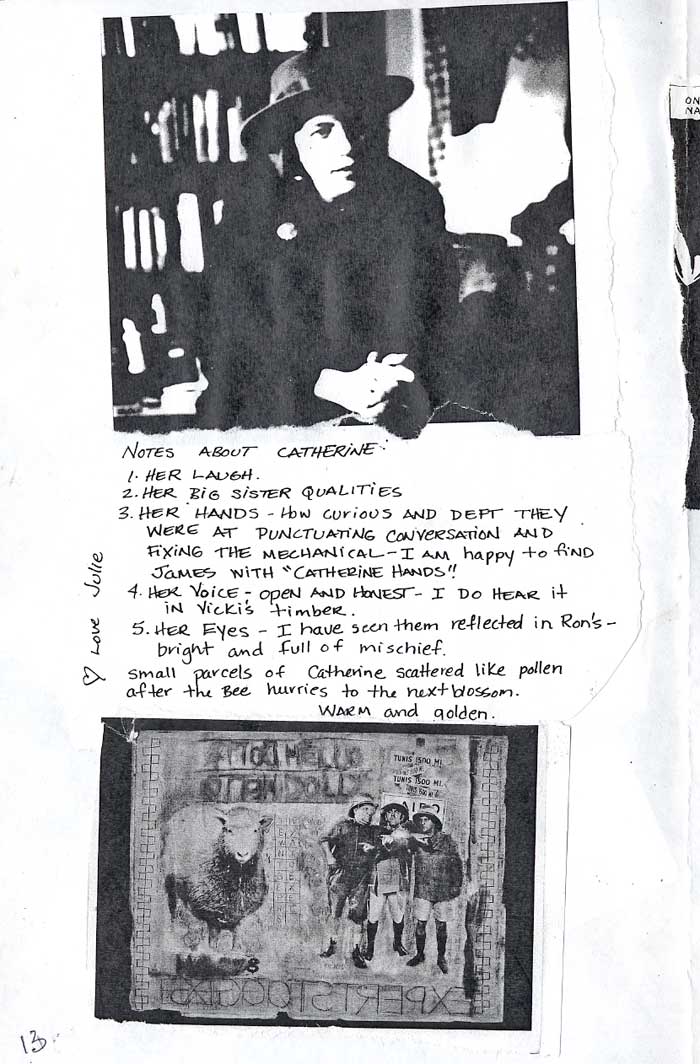 ON
NA
NOTES ABOUT CATHERINE:
1. HER LAUGH.
2. HER BIG SISTER QUALITIES
3. HER HANDS - HOW CURIOUS AND DEPT THEY
WERE AT PUNCTUATING CONVERSATION AND
FIXING THE MECHANICAL - I AM happy to find
JAMES WITH "CATHERINE HANDS"!
4. HER VOICE - OPEN AND HONEST - I DO HEAR it
IN VICKI'S timber.
5. HER EYES - I have seen them reflected in RON'S -
bright and full of mischief.
small parcels of Catherine scattered like pollen
after the Bee hurries to the next blossom.
WARM and golden.
♡ Love Julie
HELLO
DOLLY
TUNIS 1500 MI.
TUNIS 1500 MI.
EXPERTS
13